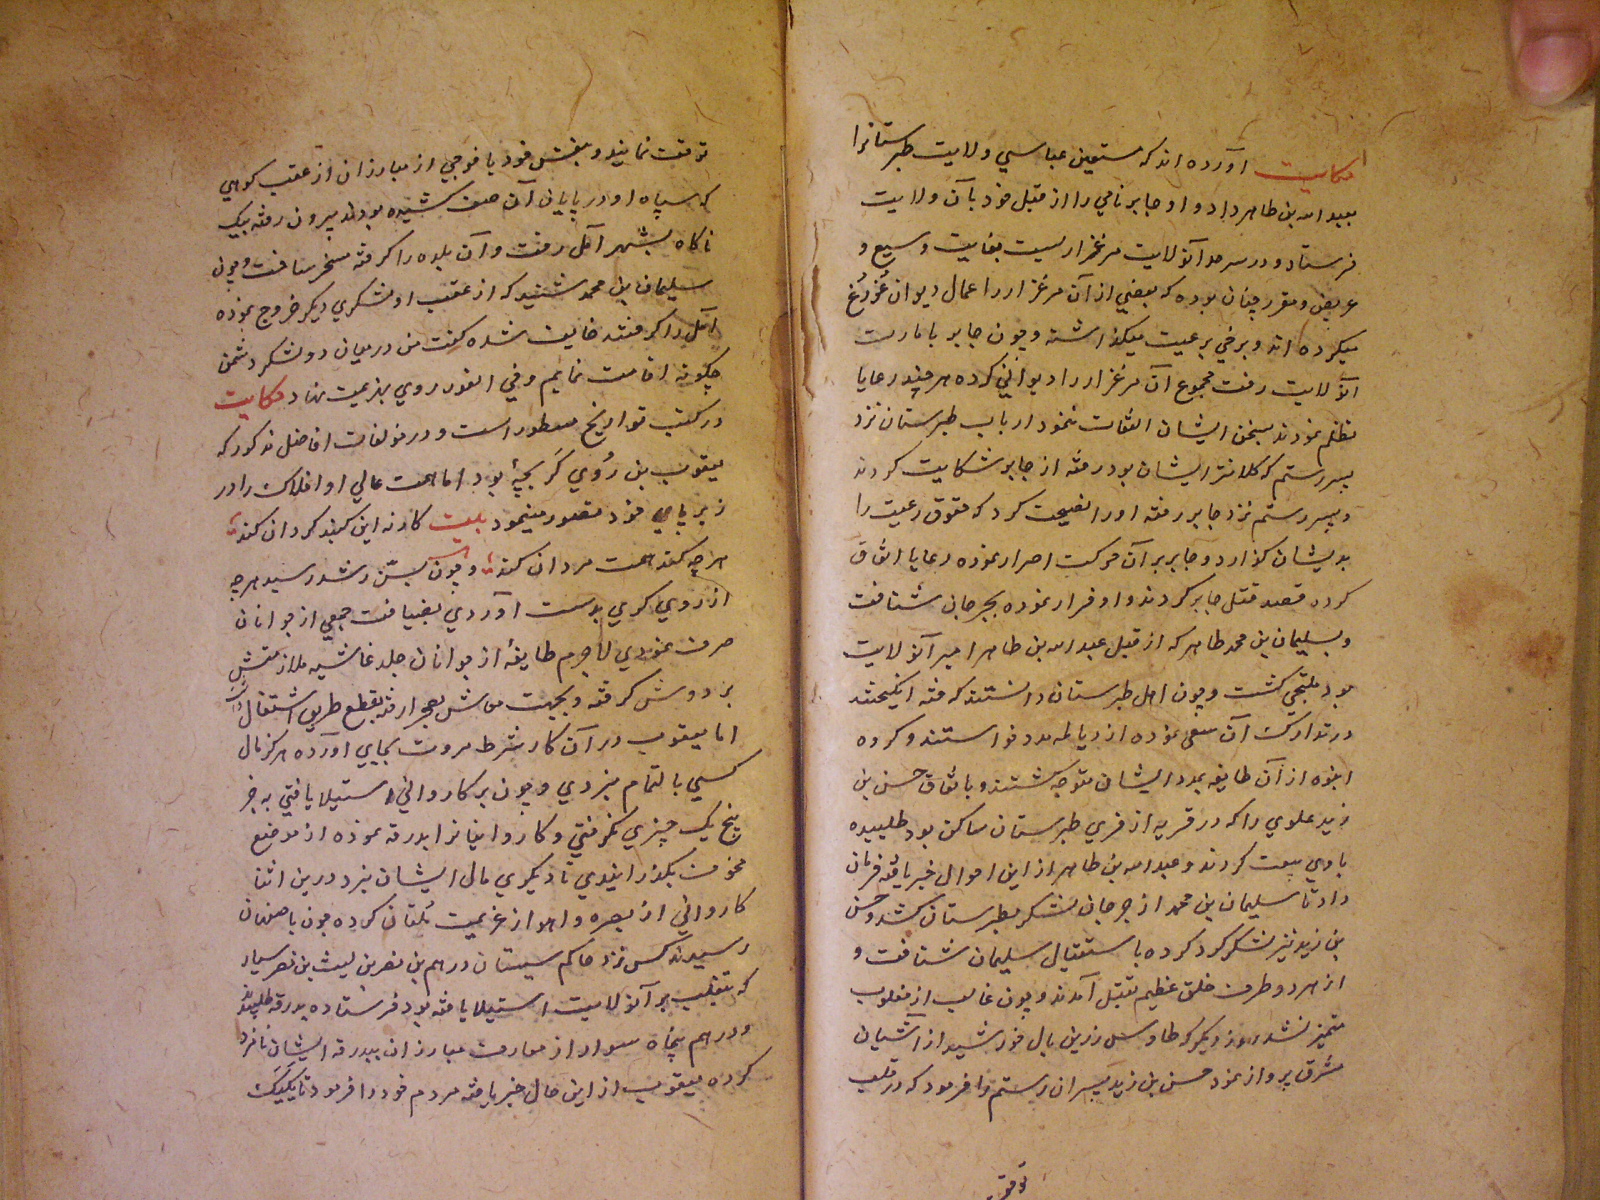 حکایت آورده اند که مستعین عباسی ولایت طبرستانرا
بعبد الله بن طاهر داد و او جابر نامی را از قبل خود بآن ولایت
فرستاد و در سرحد آنولایت مرغزاریست بغایت وسیع و
عریض و مقرر چنان بوده که بعضی از آن مرغزار را عمال دیوان غوروغ
میکرده اند و برخی برعیت میکذاشته و چون جابر بامارت
آنولایت رفت مجموع آن مرغزار را دیوانی کرده هر چند رعایا
تظلم نمودند بسخن ایشان التفات ننمود ارباب طبرستان نزد
پسر رستم که کلانتر ایشان بود رفته از جابر شکایت کردند
و پسر رستم نزد جابر رفته او را نصیحت کرد که حقوق رعیت را
بدیشان کذارد و جابر بر آن حرکت اصرار نموده رعایا اتفاق
کرده قصد قتل جابر کردند و او فرار نموده بجرجان شتافت
و بسلیمان بن محمد طاهر که از قبل عبد الله بن طاهر امیر آنولایت
بود ملتجی کشت و چون اهل طبرستان دانستند که فتنه انکیختند
در تدارک آن سعی نموده از دیالمه مدد خواستند و کرده
انبوه از آن طایفه بمدد ایشان متوجه کشتند و باتفاق حسن بن
زید علوی را که در قریه از قری طبرستان ساکن بود طلبیده
باوی بیعت کردند و عبد الله بن طاهر از این احوال خبر یافته فرمان
داد تا سلیمان بن محمد از جرجان لشکر بطبرستان کشد و حسن
بن زید نیز لشکر کرد کرده باستقبال سلیمان شتافت و
از هر دو طرف خلق عظیم بقتل آمدند و چون غالب از مغلوب
متمیز نشد روز دیکر که طاوس زرین بال خورشید از آشیان
مشرق پرواز نمود حسن بن زید پسران رستم را فرمود که در قلب
توقف
توقف نمایند و بنفس خود با فوجی از مبارزان از عقب کوهی
که سپاه او در پایان آن صف کشیده بودند بیرون رفته بیک
ناکاه بشهر آمل رفت و آن بلده را کرفته مسخر ساخت و چون
سلیمان بن محمد شنید که از عقب او لشکری دیکر خروج نموده
آمل را کرفتند خایف شده کفت من در میان دو لشکر دشمن
چکونه اقامت نمایم و فی الفور روی بهزیمت نهاد حکایت
در کتب تواریخ مسطور است و در مؤلفات افاضل مذکور که
یعقوب بن روی کر بچهٔ بود اما همت عالی او افلاک را در
زیر پای خود مقصور مینمود بیت کار نه این کنبد کردان کند
هر چه کند همت مردان کند و چون بسن رشد رسید هر چه
از روی کری بدست آوردی بضیافت جمعی از جوانان
صرف نمودی لاجرم طایفهٔ از جوانان جلد غاشیه ملازمتش
بر دوش کرفته و بجهت معاش بصحرا رفته بقطع طریق اشتغال
اما یعقوب در آن کار شرط مروت بجای آورده هرکز مال
کسی بالتمام نبردی و چون بر کاروانی استیلا یافتی بجز
پنج یک چیزی نکرفتی و کاروانیانرا بدرقه نموده از موضع
مخوف بکذرانیدی تا دیکری مال ایشان نبرد در این اثنا
کاروانی از بصره و اهواز عزیمت ملتان کرده چون باصفهان
رسیدند کس نزد حاکم سیستان درهم بن نصر بن لیث بن نصر سیار
که بتغلب بر آنولایت استیلا یافته بود فرستاده بدرقه طلبیدند
و درهم پنجاه سوار از معارف مبارزان ببدرقه ایشان نامزد
کرده یعقوب از این حال خبر یافته مردم خود را فرمود تا یکیک